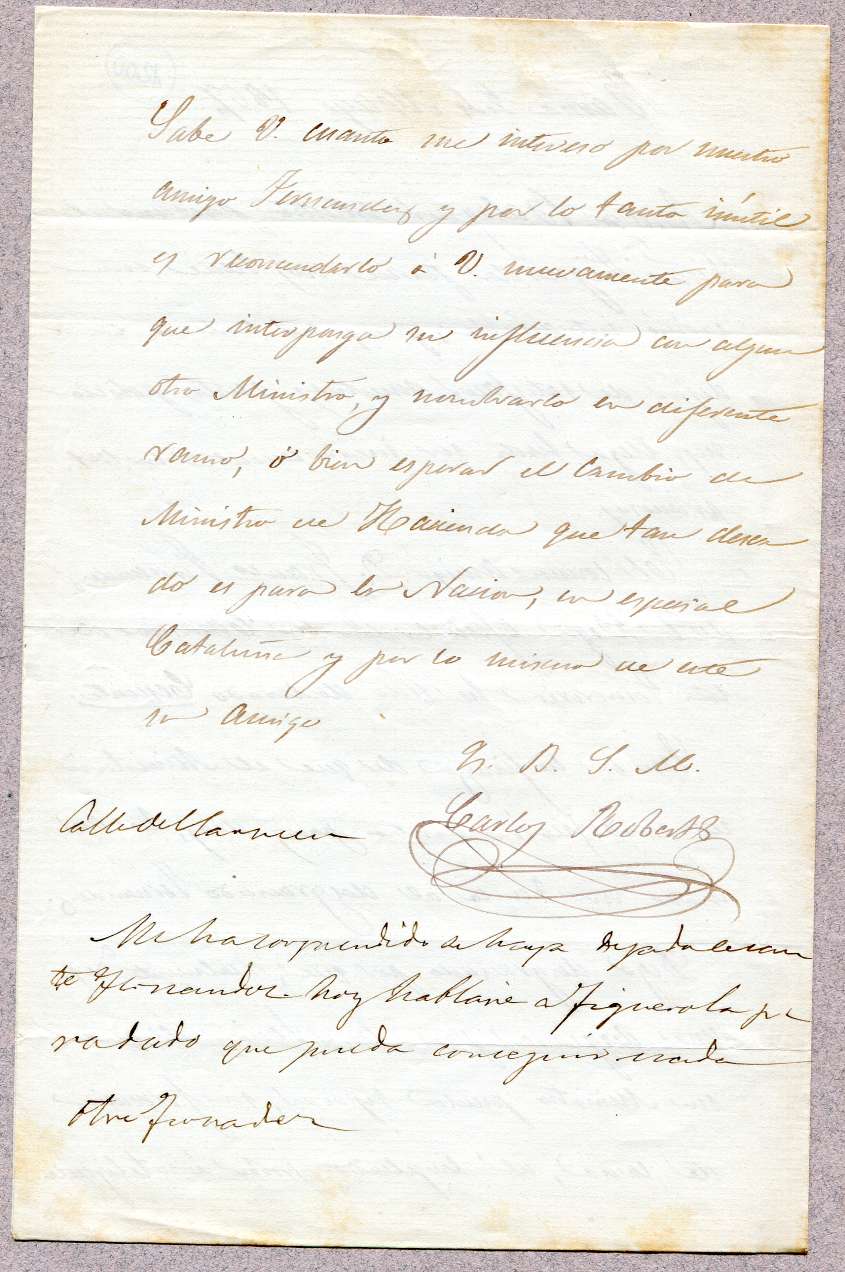 Sabe V. cuanto me intereso por nuestro
amigo Fernandez y por lo tanto inútil
es recomendarlo á V. nuevamente para
que interponga su influencia con algun
otro Ministro, y nombrarlo en diferente
ramo, ó bien esperar el cambio de
Ministro de Hacienda que tan desea
do es para la Nacion, en especial
Cataluña y por lo mismo de este
su amigo
Q. B. S. M.
Carlos Roberts
Calle del Carmen
Me ha sorprendido se haya dejado cesan
te Fernandez. hoy hablaré a Figuerola pe
ro dudo que pueda conseguir nada
otro